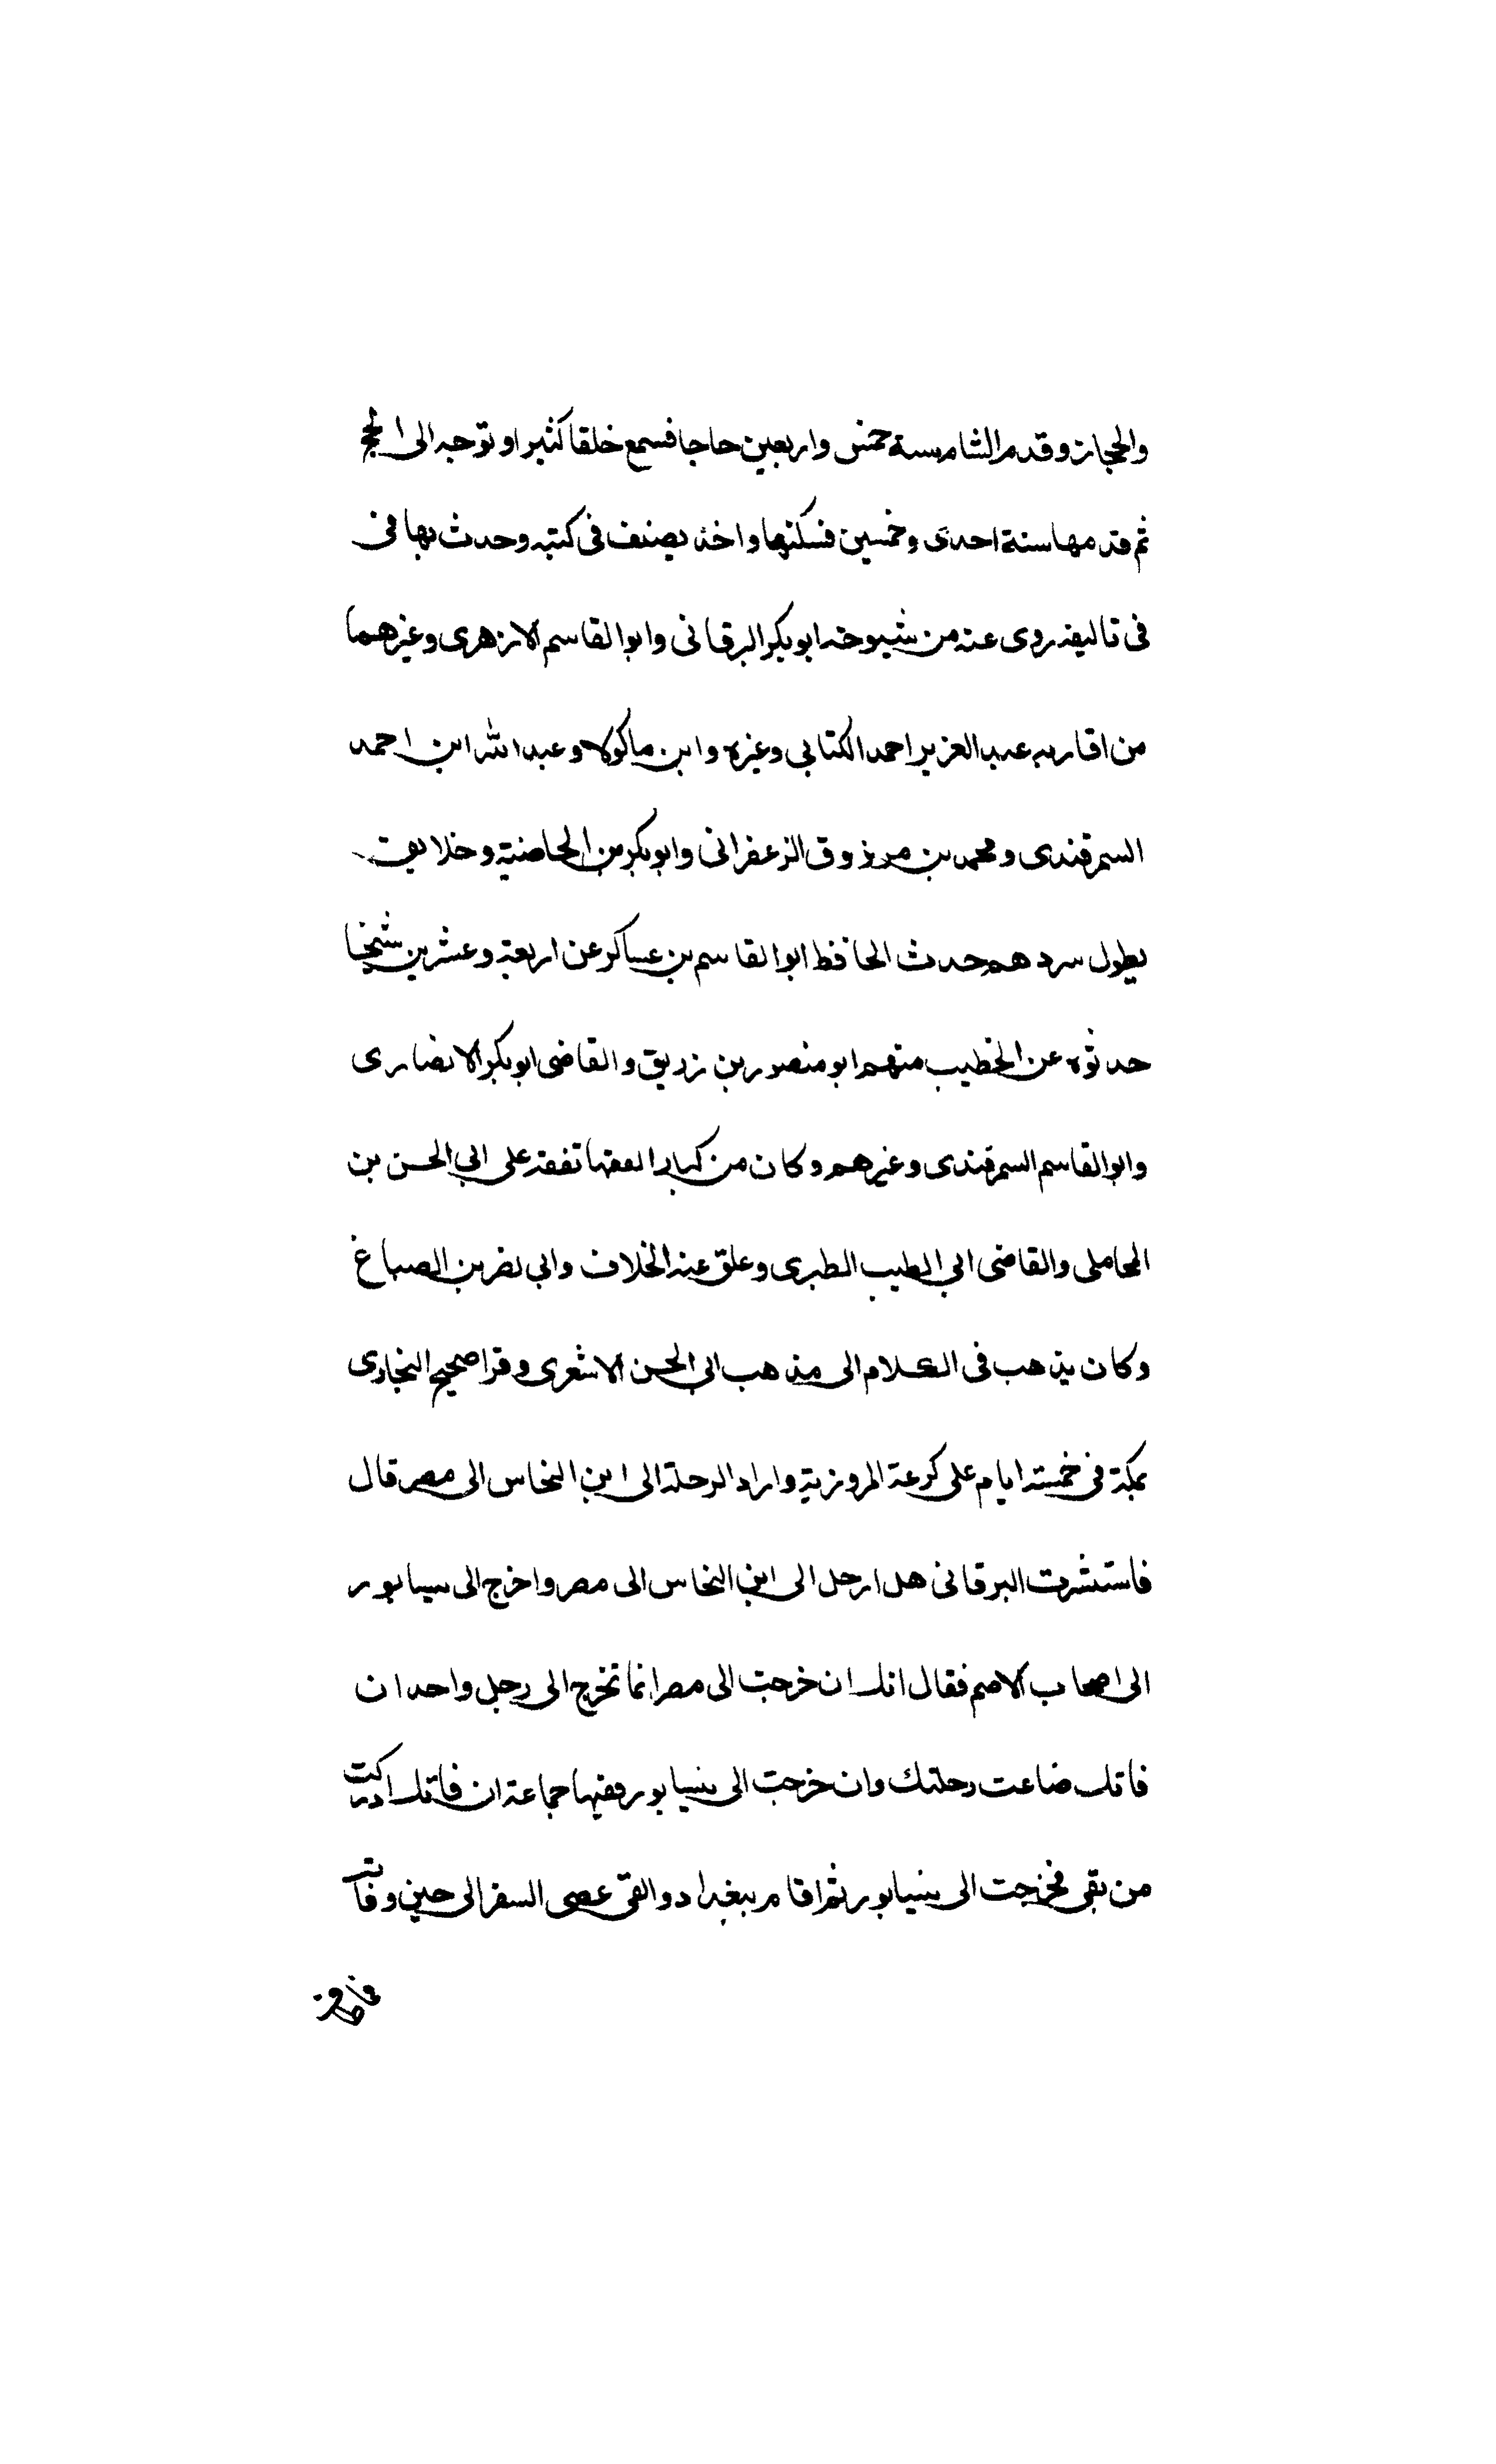 والحجاز وقدم الشام سنة خمس واربعين حاجا فسمع خلقا كثيرا وتوجه الى الحج
ثم قدمها سنة احدى وخمسين فسكنها واخذ يصنف فى كتبه وحدث بها فى
فى تاليفه روى عنه من شيوخه ابوبكر البرقانى وابوالقاسم الازهرى وغيرهما
من اقاربه عبد العزيز احمد الكتابي وغيره وابن ماكولا وعبدالله ابن احمد
السمرقندى ومحمد بن مرزوق الزعفرانى وابوبكر من الحاضنية وخلايق
يطول سردهم حدث الحافظ ابوالقاسم بن عساكر عن اربعة وعشرين شيخا
حدثوه عن الخطيب منهم ابو منصور بن زريق والقاضى ابوبكر الانصارى
وابوالقاسم السمرقندى وغيرهم وكان من كبار الفقها تفقه على ابي الحسن بن
المحاملى والقاضى ابي الطيب الطبرى وعلق عنه الخلاف وابي نصر بن الصباغ
وكان يذهب فى الكلام الى مذهب ابي الحسن الاشعرى وقرا صحيح البخارى
بمكة فى خمسة ايام على كرعة المروزية واراد الرحلة الى ابن النحاس الى مصر قال
فاستشرت البرقانى هل ارحل الى ابن النحاس الى مصر واخرج الى نيسابور
الى اصحاب الاصم فقال انك ان خرجت الى مصر انما تخرج الى رجل واحد ان
فاتك ضاعت رحلتك وان خرجت الى نيسابور ففيها جماعة ان فاتك ادركت
من بقى فخرجت الى نيسابور ثم اقام ببغداد والقى عصى السفر الى حين وفاته